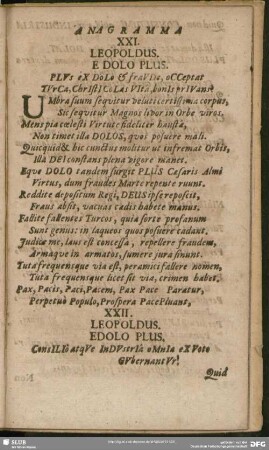 ANAGRAMMA
XXI.
LEOPOLDUS.
E DOLO PLUS.
PLVs eX DoLo & fraVDe, oCCeptat
TVrCa, ChrIstICoLas VIta, bonIs prIVanDo
Umbra suum sequitur veluti certissima corpus,
Sic sequitur Magnos livor in Orbe viros.
Mens pia cœlesti Virtute fideliter hausta,
Non timet illa DOLOS, quos posuere mali.
Quicquid & hic cunctus molitur ut infremat Orbis,
Illa DEI constans plena vigore manet.
Eque DOLO tandem surgit PLUS Cæsaris Almi
Virtus, dum fraudes Marte repente ruunt.
Reddite depositum Regi, DEUS ipse reposcit,
Fraus absit, vacuas cædis habete manus.
Fallite fallentes Turcos, quia sorte profanum
Sunt genus: in laqueos quos posuere cadant.
Judice me, laus est concessa, repellere fraudem,
Armaque in armatos, sumere jura sinunt.
Tuta frequensque via est, per amici fallere nomen,
Tuta frequensque licet sit via, crimen habet.
Pax, Pacis, Paci, Pacem, Pax Pace Paratur,
Perpetuò Populo, Prospera Pace Pluant,
XXII.
LEOPOLDUS.
EDOLO PLUS.
ConsILIo atqVe InDVstrIa oMnIa eX Voto
GVbernantVr!
Quid
SLUB